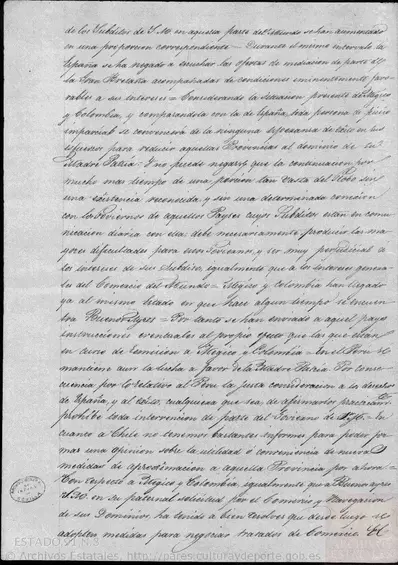 de los Subditos de S.M. en aquella parte del Mundo se han aumentado
en una proporcion correspondiente = Durante el mismo intervalo la
España se ha negado a escuchar las ofertas de mediacion de parte de
la Gran Bretaña acompañadas de condiciones eminentemente favo-
rables a su interes = Considerando la situacion presente de Megico
y Colombia, y comparandola con la de España, toda persona de juicio
imparcial se convencerá de la ninguna esperanza de éxito en los
esfuerzos para reducir aquellas Provincias al dominio de su
Madre Patria. Y no puede negarse que la continuacion por
mucho mas tiempo de una porcion tan vasta del Globo sin
una existencia reconocida, y sin una determinada conexion
con los Goviernos de aquellos Payses cuyos Subditos están en comu-
nicacion diaria con ella, debe necesariamente producir las ma-
yores dificultades para esos Goviernos, y ser muy perjudicial a
los intereses de sus Subditos, igualmente que a los intereses genera-
les del Comercio del Mundo = Megico y Colombia han llegado
ya al mismo estado en que hace algun tiempo se encuen-
tra Buenos Ayres = Por tanto se han enviado a aquel pays
instrucciones eventuales al propio efecto que las que están
en curso de remision a Megico y Colombia = En el Perú se
mantiene aun la lucha a favor de la Madre Patria. Por conse-
cuencia por lo relativo al Perú la justa consideracion a los derechos
de España, y al éxito, cualquiera que sea, de afirmarlos
prohibe toda intervencion de parte del Govierno de S.M. = En
cuanto a Chile no tenemos bastantes informes para poder for-
mar una opinion sobre la utilidad o conveniencia de nuevas
medidas de aproximacion a aquella Provincia por ahora =
Con respecto a Megico y Colombia, igualmente que a Buenos ayres
S.M. en su paternal solicitud por el Comercio y Navegacion
de sus Dominios, ha tenido a bien resolver que desde luego se
adopten medidas para negociar tratados de Comercio. El
ESTADO,91,N.8
© Archivos Estatales, http://pares.culturaydeporte.gob.es